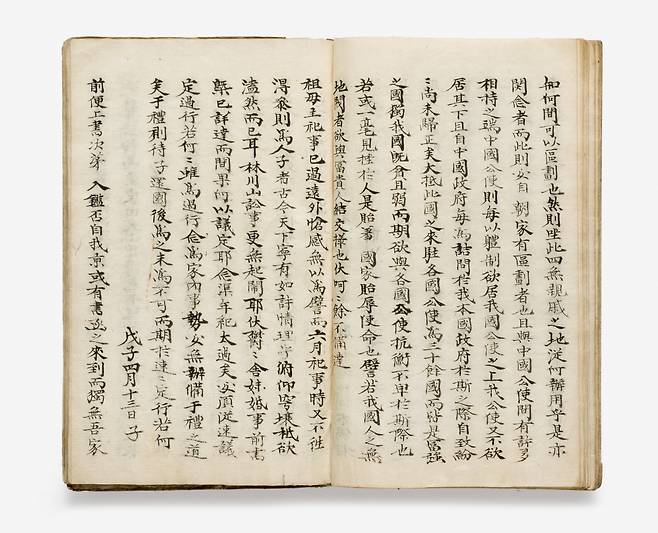 如何間可以區劃也然則坐此四無親戚之地從何辦用乎是亦
関念者而此則女自 朝家有區劃者也且與中國公使間有許多
相持之端中國公使則每以軆制欲居我國公使之上我公使又不欲
居其下且自中國政府每爲詰問於我本國政府於斯之際自致紛
〻尚未歸正矣大抵此國之來駐各國公使爲三十餘國而皆是富強
之國獨我國旣貧且弱而期欲與各國公使抗衡不卑於斯際也
若或一毫見挫於人是貽羞 國家貽辱使命也譬若我國人之無
地閥者欲與富貴人結交樣也伏呵〻餘不備達
祖母主祀事已過遠外愴感無以爲譬而六月祀事時又不在
淂參則爲人子者古今天下寧有如許情理乎俯仰穹壤極欲
溘然而已耳林川山訟事更無起鬧耶伏鬱〻舍妹婚事前書
槩已詳達而間果何以議定耶念渠年祀太過矣女須從速議
定過行若何〻雖爲過行念爲家內事勢女無辦備于禮之道
矣于禮則待子還國後爲之未爲不可而期於速〻定行若何
戊子四月十三日 子
前便上書次第 入鑑否自我京或有書函之來到而獨無吾家